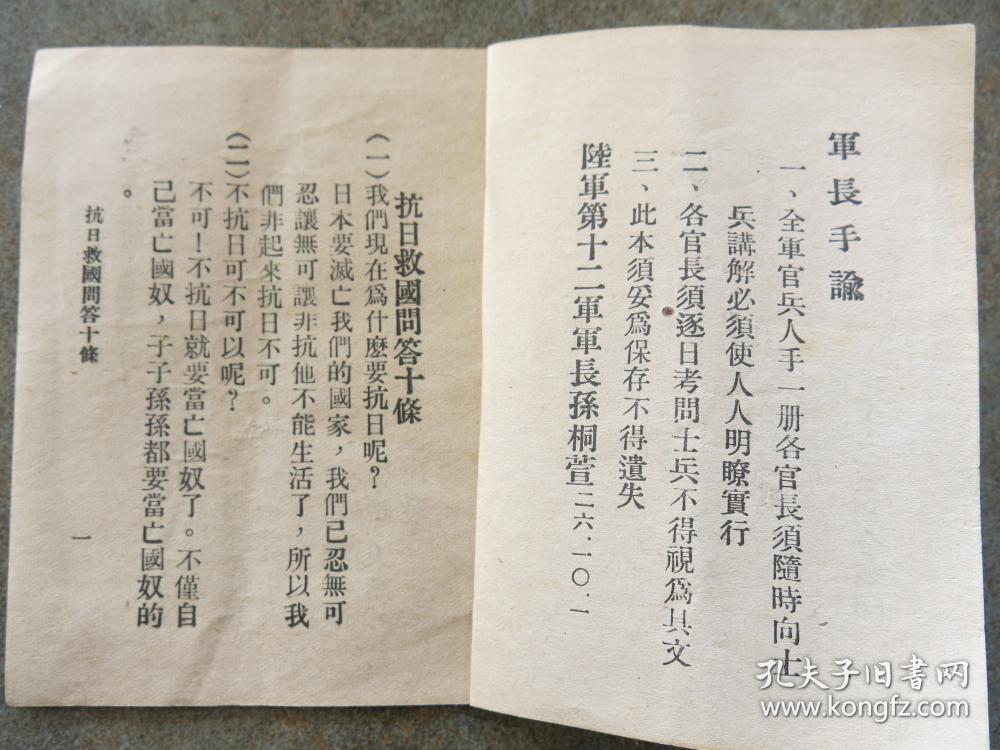 軍長手諭
一、全軍官兵人手一册各官長須隨時向士
兵講解必須使人人明瞭實行
二、各官長須逐日考問士兵不得視爲具文
三、此本須妥爲保存不得遺失
陸軍第十二軍軍長孫桐萱二六.一〇.一
抗日救國問答十條
(一)我們現在爲什麼要抗日呢?
日本要滅亡我們的國家,我們已忍無可
忍讓無可讓非抗他不能生活了,所以我
們非起來抗日不可。
(二)不抗日可不可以呢?
不可!不抗日就要當亡國奴了。不僅自
己當亡國奴,子子孫孫都要當亡國奴的
。
抗日救國問答十條
一
孔夫子旧书网
www.kongfz.com